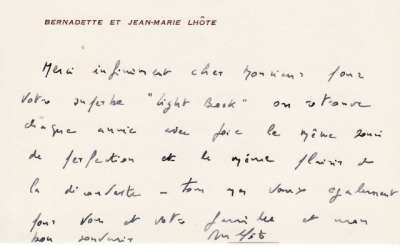 BERNADETTE ET JEAN-MARIE LHÔTE
Merci infiniment cher Monsieur pour
votre superbe "Light Book" on retrouve
chaque année avec joie le même souci
de perfection et le même plaisir de
la découverte – tous mes vœux également
pour vous et votre famille et mon
bon souvenir